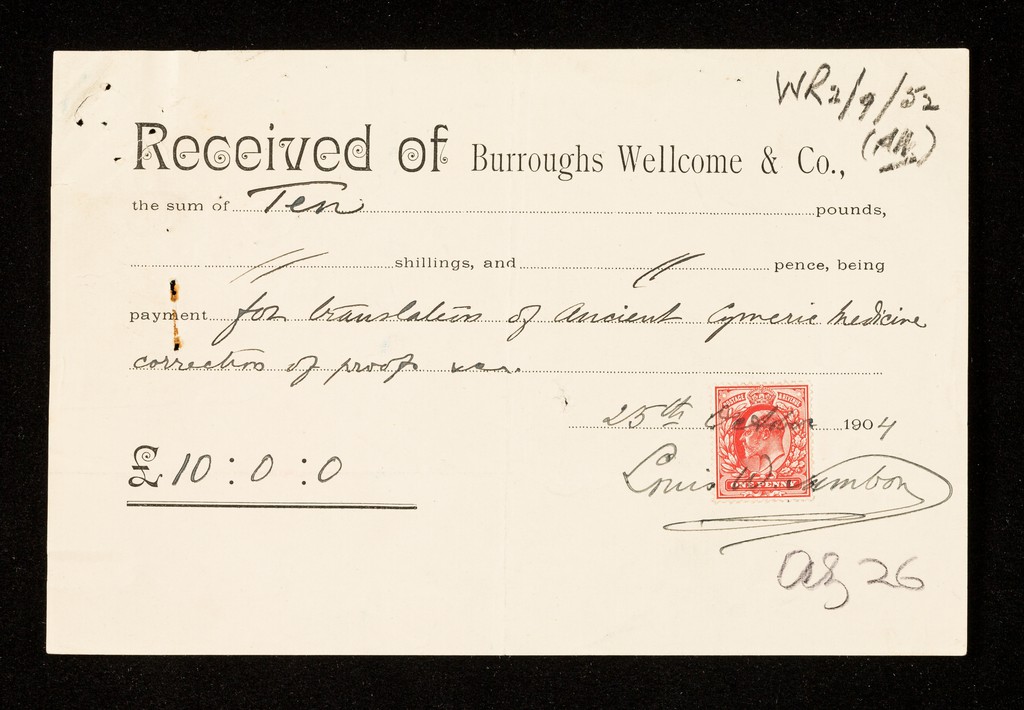 WR2/9/52
(AM)
Received of Burroughs Wellcome & Co.,
the sum of Ten pounds,
" shillings, and " pence, being
payment for translation of Ancient Cymric Medicine
correction of proofs
25th October 1904
POSTAGE & REVENUE
ONE PENNY
£10:0:0
Louis Sambon
26